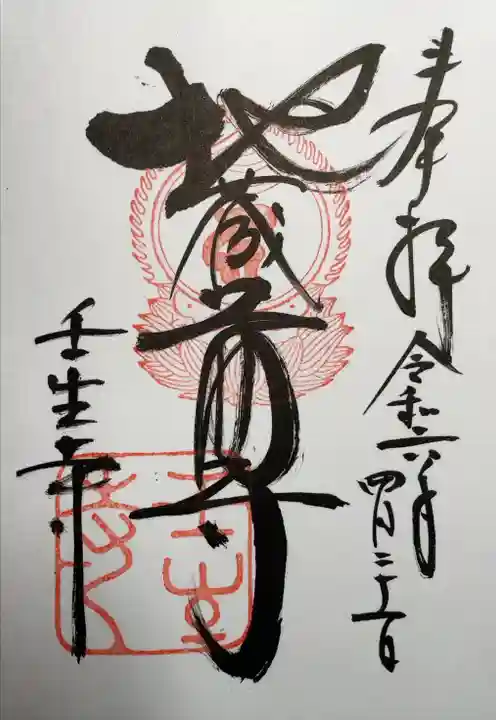 奉拝 令和六年四月二十一日
地蔵尊
壬生寺